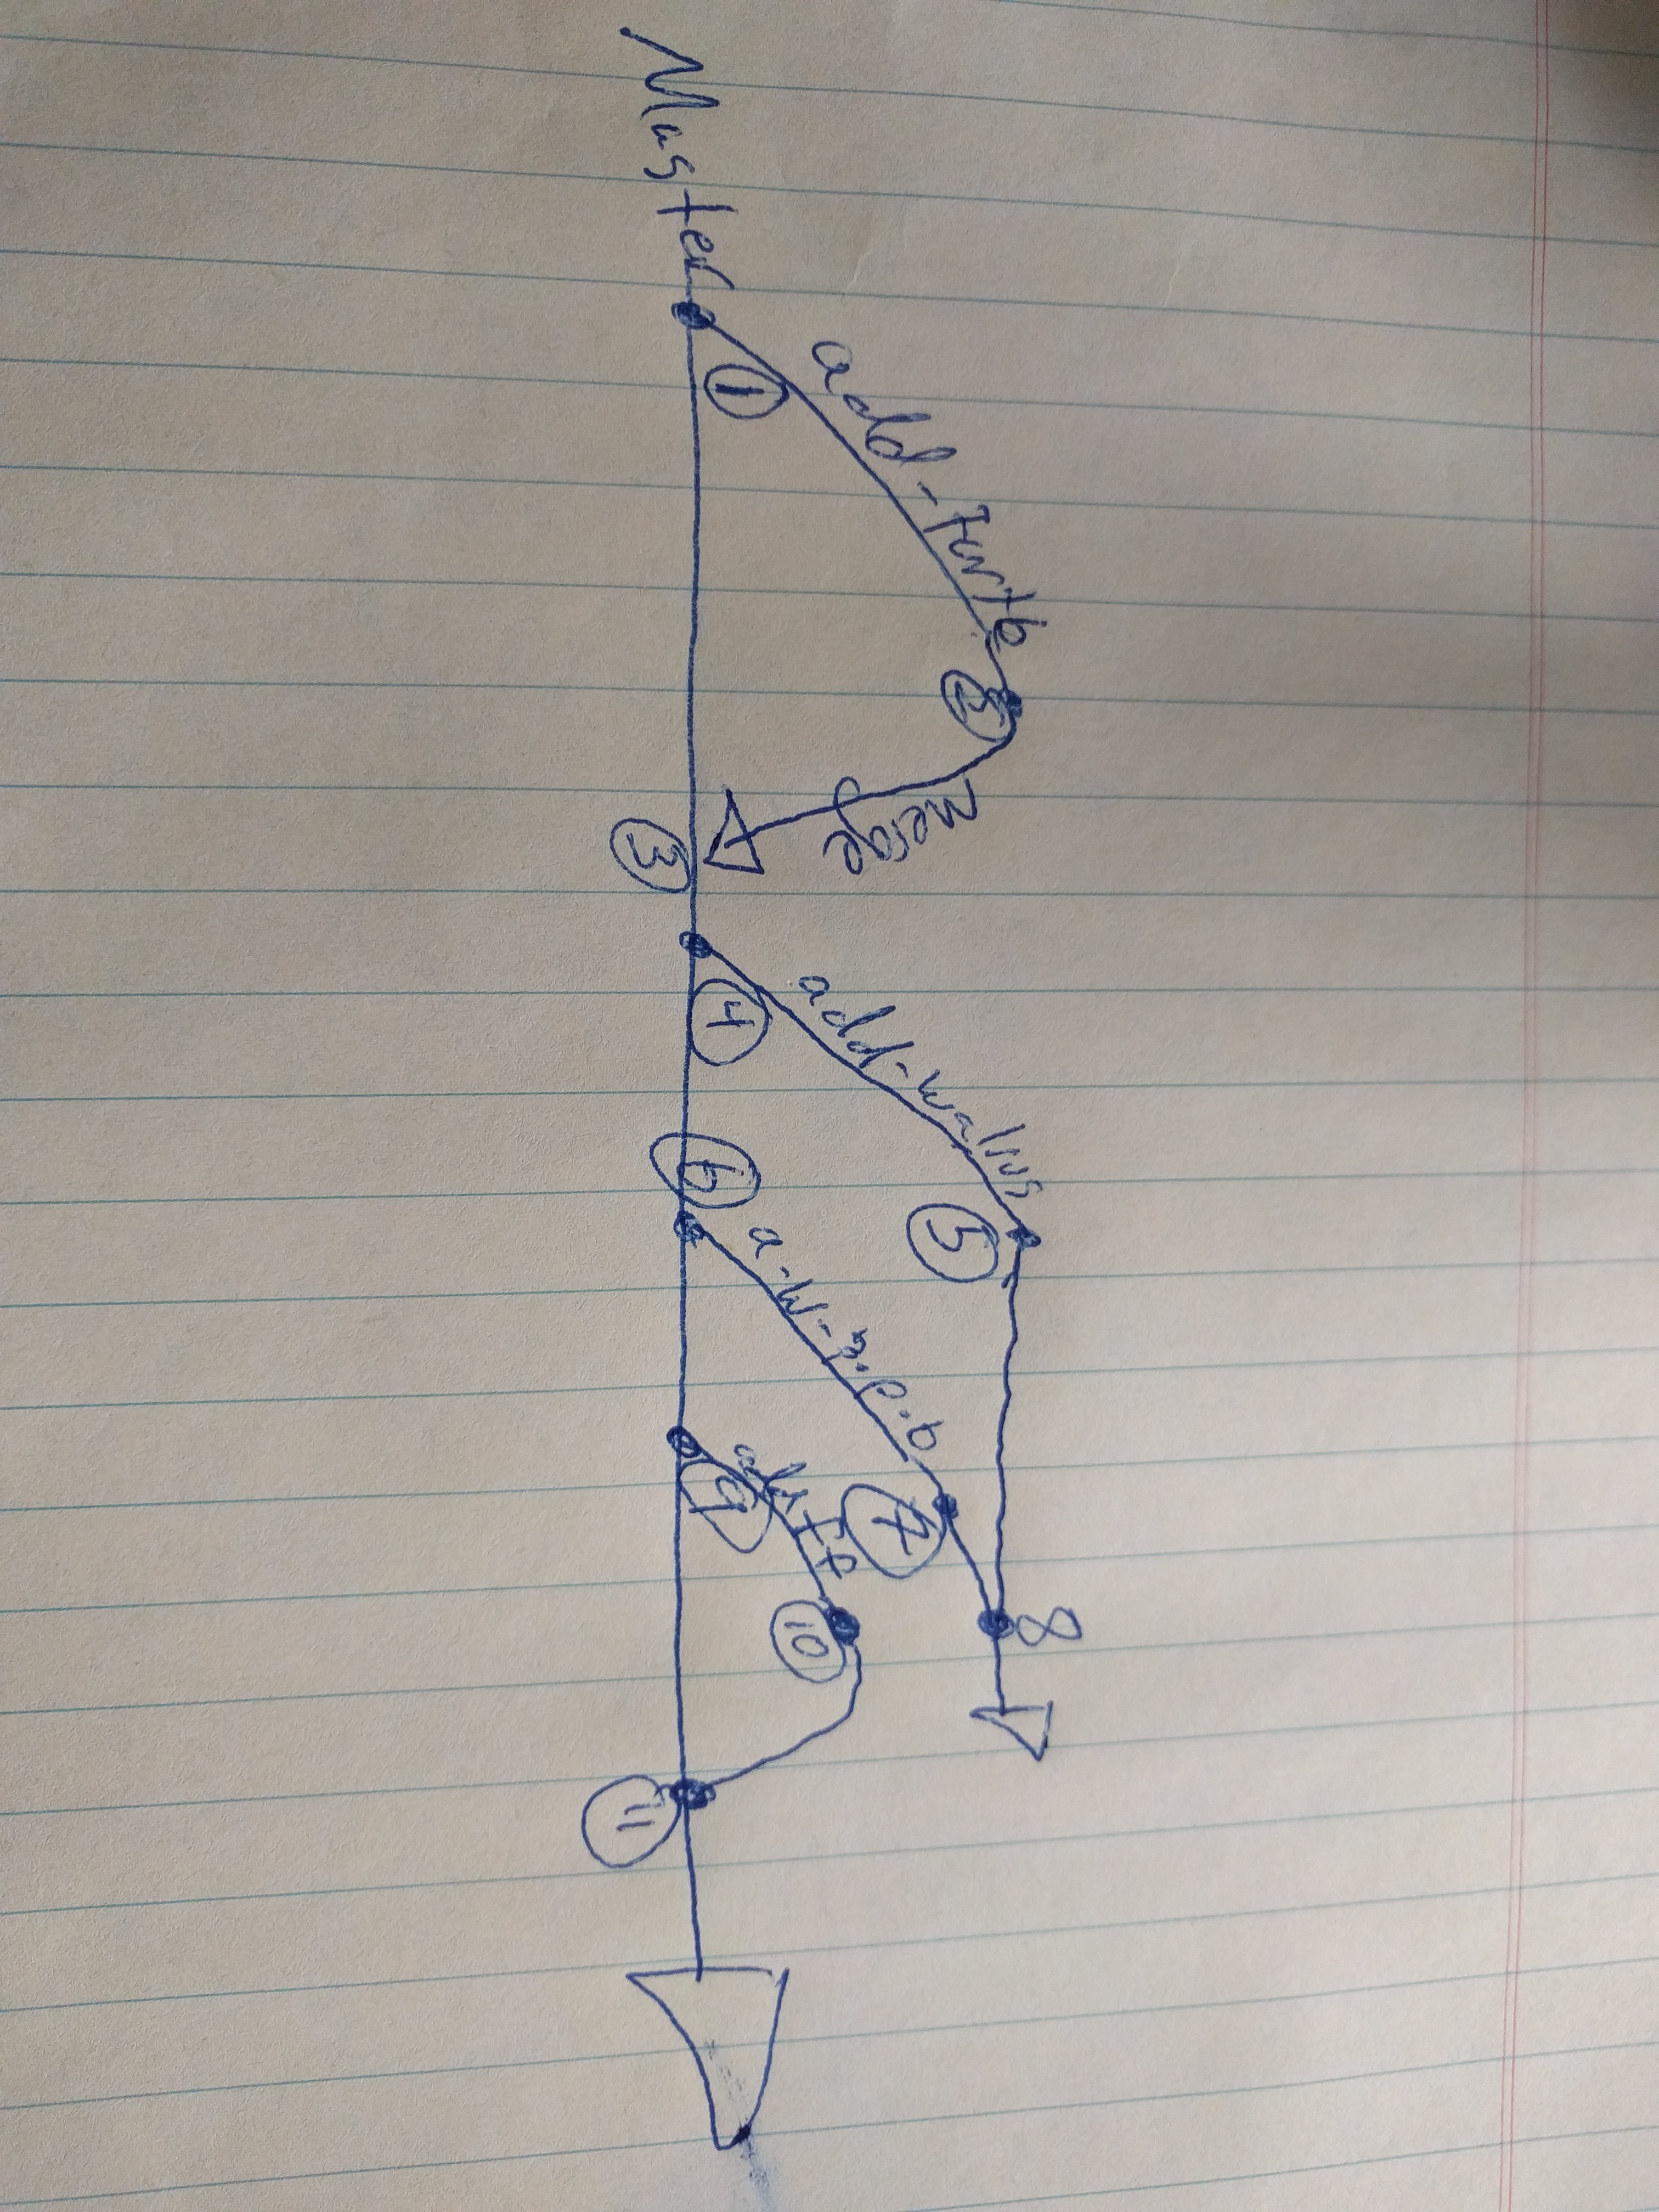 Master
1
add-turtle
2
merge
3
4
add-walrus
5
6
7
8
9
10
11